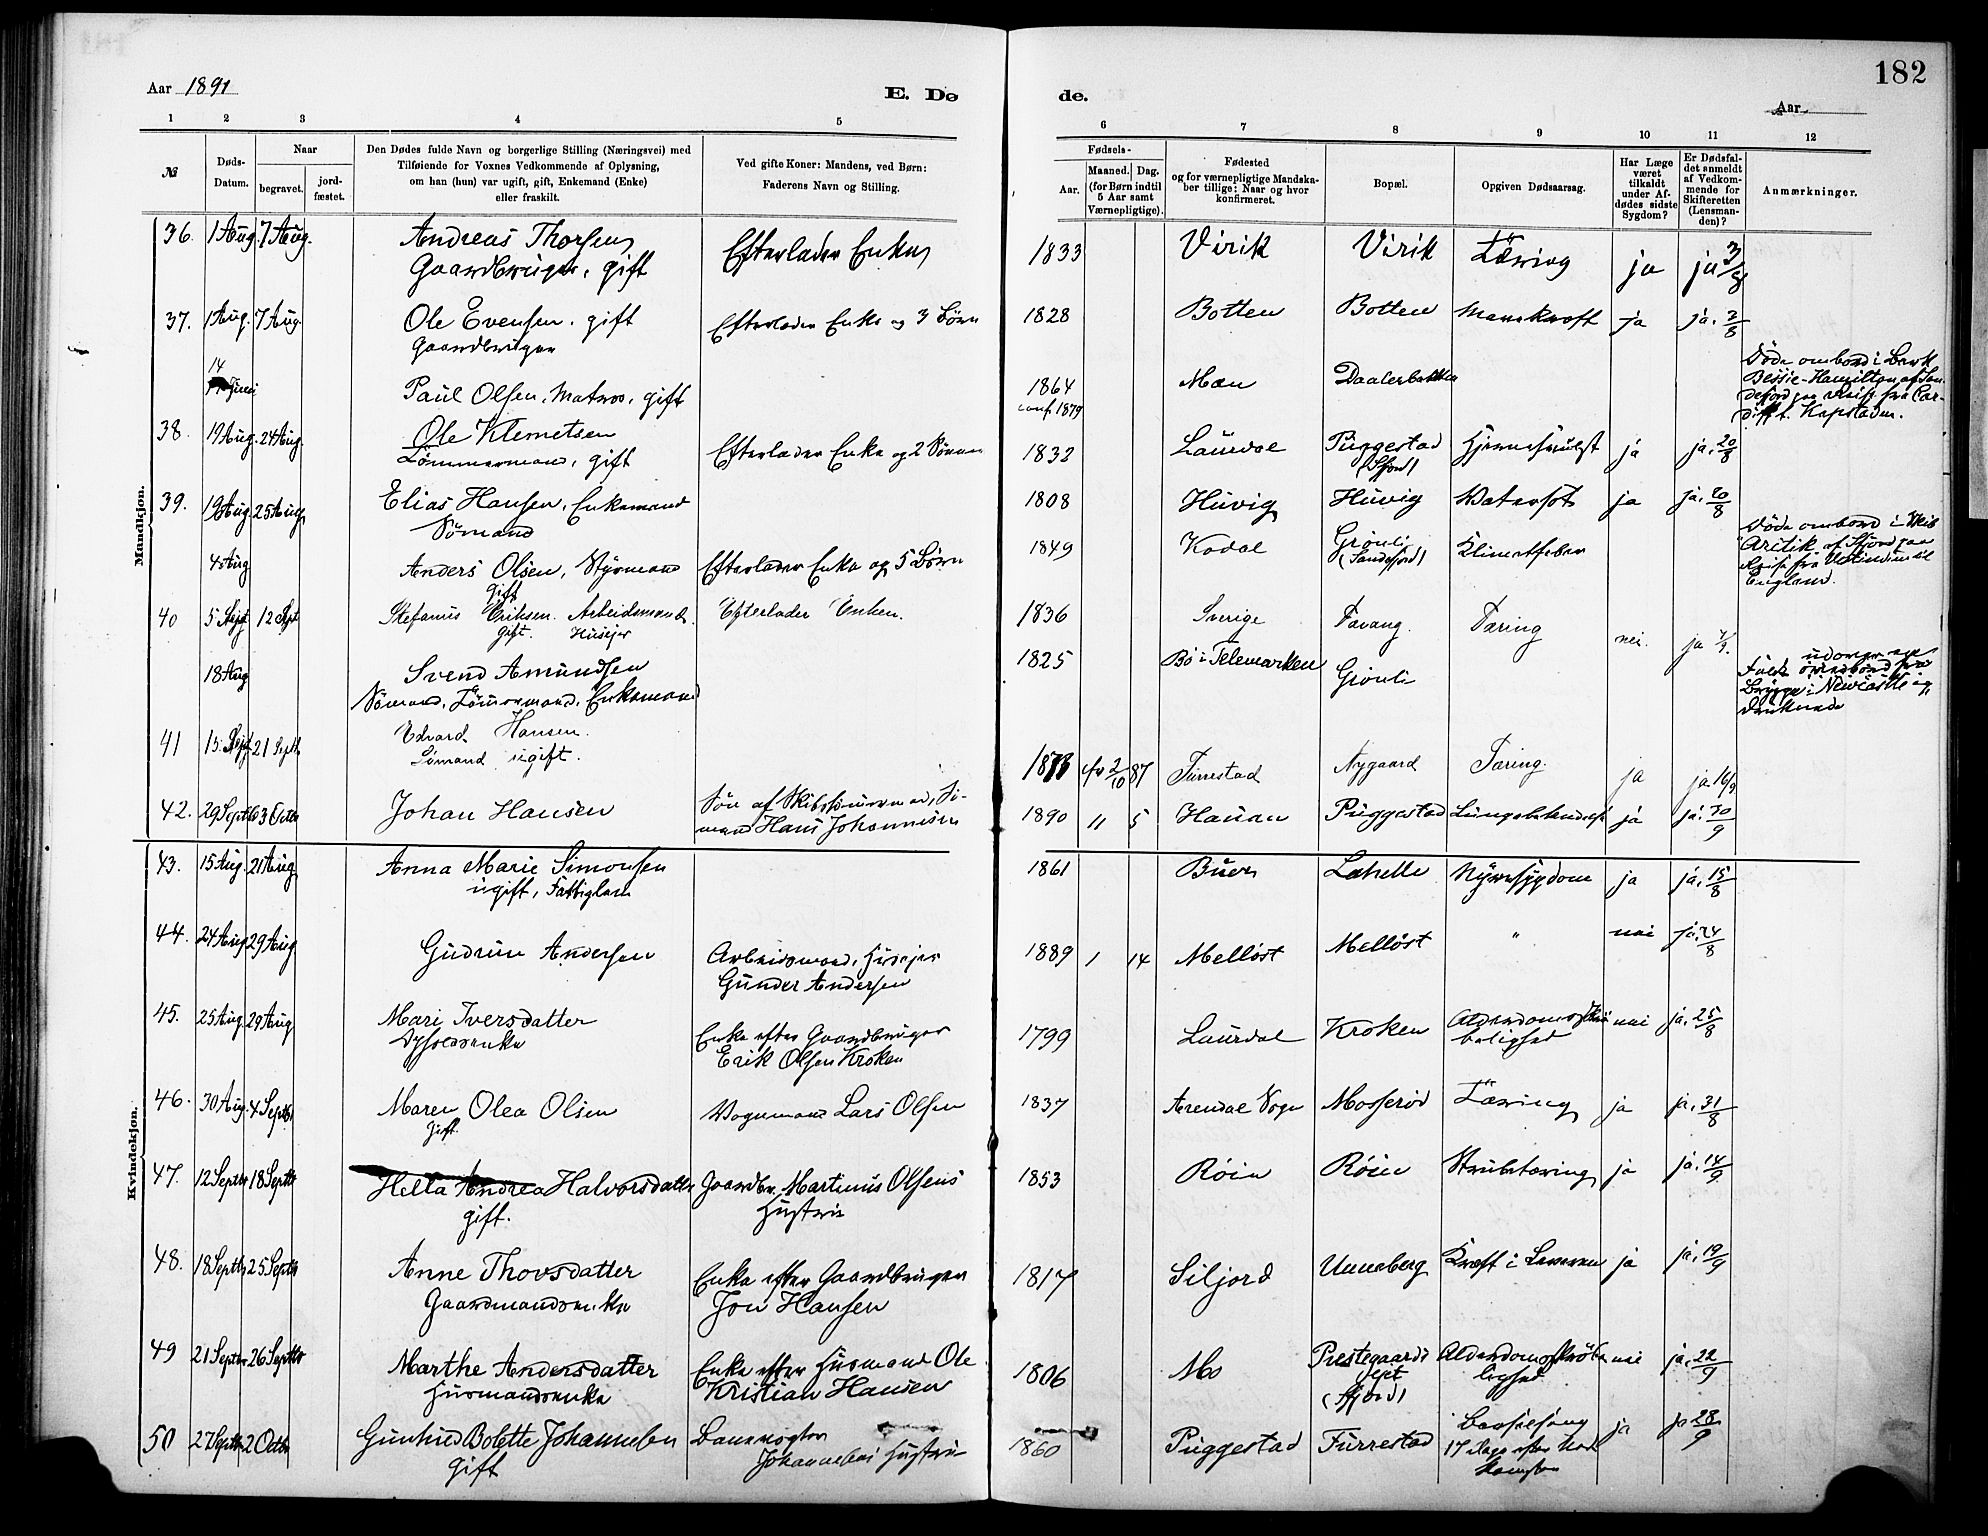 182
Aar 1891
E. Dø
de.
Aar
1 2 3 4 5 6 7 8 9 10 11 12
№
Døds-
Datum.
Naar
begravet.
jord-
fæstet.
Den Dødes fulde Navn og borgerlige Stilling (Næringsvei) med
Tilføiende for Voxnes Vedkommende af Oplysning,
om han (hun) var ugift, gift, Enkemand (Enke)
eller fraskilt.
Ved gifte Koner: Mandens, ved Børn:
Faderens Navn og Stilling.
Fødsels-
Aar.
Maaned. Dag.
(for Børn indtil
5 Aar samt
Værnepligtige).
Fødested
og for værnepligtige Mandska-
ber tillige: Naar og hvor
konfirmeret.
Bopæl.
Opgiven Dødsaarsag.
Har Læge
været
tilkaldt
under Af-
dødes sidste
Sygdom?
Er Dødsfal-
det anmeldt
af Vedkom-
mende for
Skifteretten
(Lensman-
den)?
Anmærkninger.
Mandkjøn.
36. 1 Aug 7 Aug. Andreas Thorsen Efterlader Enke 1833 Virik Virik Tæring ja ja 3/8
Gaardbruger, gift
37. 1 Aug. 7 Aug. Ole Evensen. gift Efterlader Enke og 3 Børn 1828 Botten Botten Mavekræft ja ja. 3/8
Gaardbruger
14 Juni Paul Olsen, Matros, gift 1864 Mæn Daalerbakken
conf. 1879
Døde ombord i Bark
Bessie-Hamilton af San-
defjord paa Reise fra Car-
diff t. Kapstaden.
38. 19 Aug. 24 Aug. Ole Klemetsen Efterlader Enke og 2 Sønner 1832 Laurdal Puggestad ja ja. 20/8
Tømmermand, gift (Sfjord)
39. 19 Aug 25 Aug Elias Hansen, Enkemand 1808 Huvig Huvig Vatersot ja ja. 20/8
Sømand
4 Aug Anders Olsen, Styrmand Efterlader Enke og 5 Børn 1849 Kodal Grønli Klimatfeber
gift (Sandefjord)
Døde ombord i Skib
Artik af Sfjord paa
Reise fra Vestindien til
England.
40 5 Sept 12 Sept Stefanus Eriksen. Arbeidsmand. Efterlader Enken. 1836 Sverige Favang. Tæring nei. ja 7/9.
gift. Huseier
18 Aug Svend Amundsen 1825 Bø i Telemarken Grønli
Sømand, Tømmermand, Enkemand
Brygge i Newcastle og
druknede
41 15 Sept 21 Septb Edvard Hansen. 1873 2/10 87 Furrestad Nygaard Tæring. ja ja 16/9
Sømand ugift.
42. 29 Septb 3 Octbr Johan Hansen 1890 11 5 Hauan Puggestad ja ja. 30/9
mand Hans Johannesen
Kvindekjøn.
43. 15 Aug. 21 Aug Anna Marie Simonsen 1861 Buer Lahelle Nyresygdom ja ja. 15/8
ugift, Fattiglem
44. 24 Aug 29 Aug. Gudrun Andersen Arbeidsmand, Huseier 1889 1 14 Melløst Melløst " nei ja. 24/8
Gunder Andersen
45. 25 Aug. 29 Aug Mari Iversdatter Enke efter Gaardbruger 1799 Laurdal Kroken nei ja. 25/8
Erik Olsen Kroken
46. 30 Aug. 4 Septbr Maren Olea Olsen Vognmand Lars Olsen 1837 Arendal Sogn Mosserød Tæring ja ja. 31/8
gift.
47. 12 Septbr 18 Septbr Hella Andrea Halvorsdatter Gaardbr. Martinus Olsens 1853 Røien Røien Strubetæring ja ja. 14/9
gift. Hustru
48. 18 Septbr 25 Septbr Anne Thovsdatter Enke efter Gaardbruger 1817 Siljord Unneberg Kræft i Leveren ja ja. 19/9
Gaardmandsenke Jon Hansen
49 21 Septbr 26 Septbr Marthe Andersdatter Enke efter Husmand Ole 1806 Mo Prestegaards nei ja. 22/9
Husmandsenke Kristian Hansen
50 27 Septbr 2 Octbr Gunhild Bolette Johannesen 1860 Puggestad Furrestad Barselseng ja ja 28/9
gift Johannesens Hustru 17 Dage efter Ned-
komsten